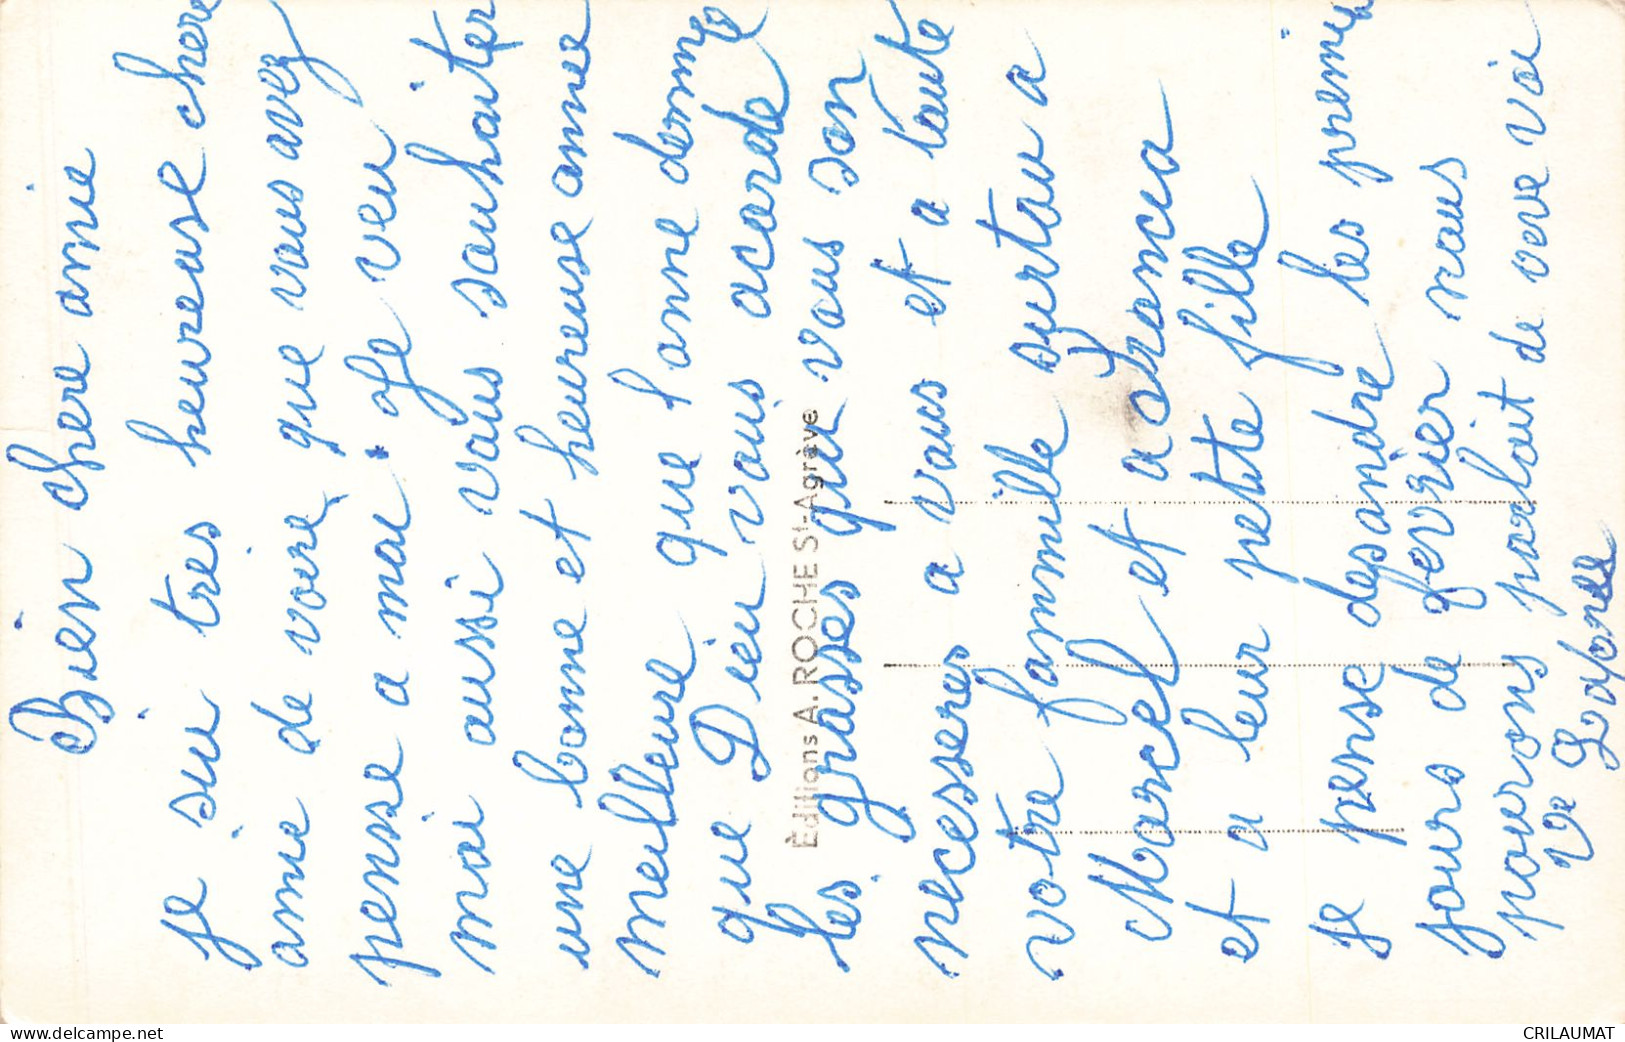 Bien chere amie
je sui tres heureuse chere
amie de voire que vous avez
pense a moi. Je veu
moi aussi vous souhaiter
une bonne et heureuse anneé
meilleure que l anne derniere
que Dieu vous acorde
les grasses qui vous son
necesseres a vous et a toute
votre fammille surtou a
Marcel et a Francia
et a leur petite fille
je pense desandre les premie
jours de fevrier nous
pouvons parlait de vive voi
Ve
Éditions A. ROCHE St-Agrève
www.delcampe.net
CRILAUMAT